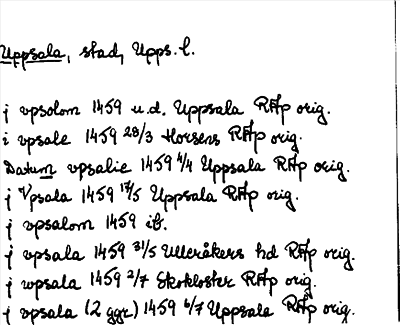 Uppsala, stad, Upps. l.
j vpsolom 1459 u.d. Uppsala RAp orig.
i vpsale 1459 28/3 Horsens RAp orig.
Datum vpsalie 1459 4/4 Uppsala RAp orig.
j Vpsala 1459 17/5 Uppsala RAp orig.
j vpsalom 1459 ib.
j vpsala 1459 31/5 Ulleråkers hd RAp orig.
j wpsala 1459 2/7 Skokloster RAp orig.
j vpsala (2 ggr) 1459 6/7 Uppsala RAp orig.